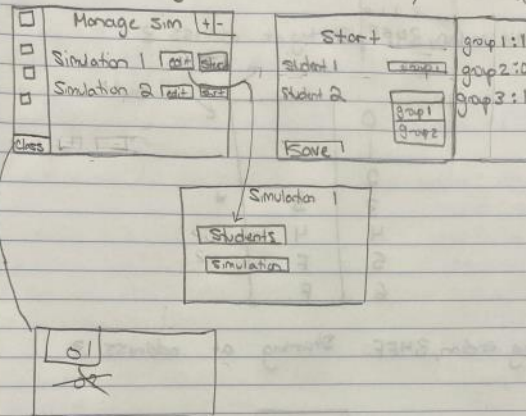 Manage Sim + -
Simulation 1 edit Start
Simulation 2 edit start
Class
Start
Student 1 group1
Student 2
group 1
group 2
Save
group 1: 1
group 2: 0
group 3: 1
Simulation 1
Students
Simulation
01